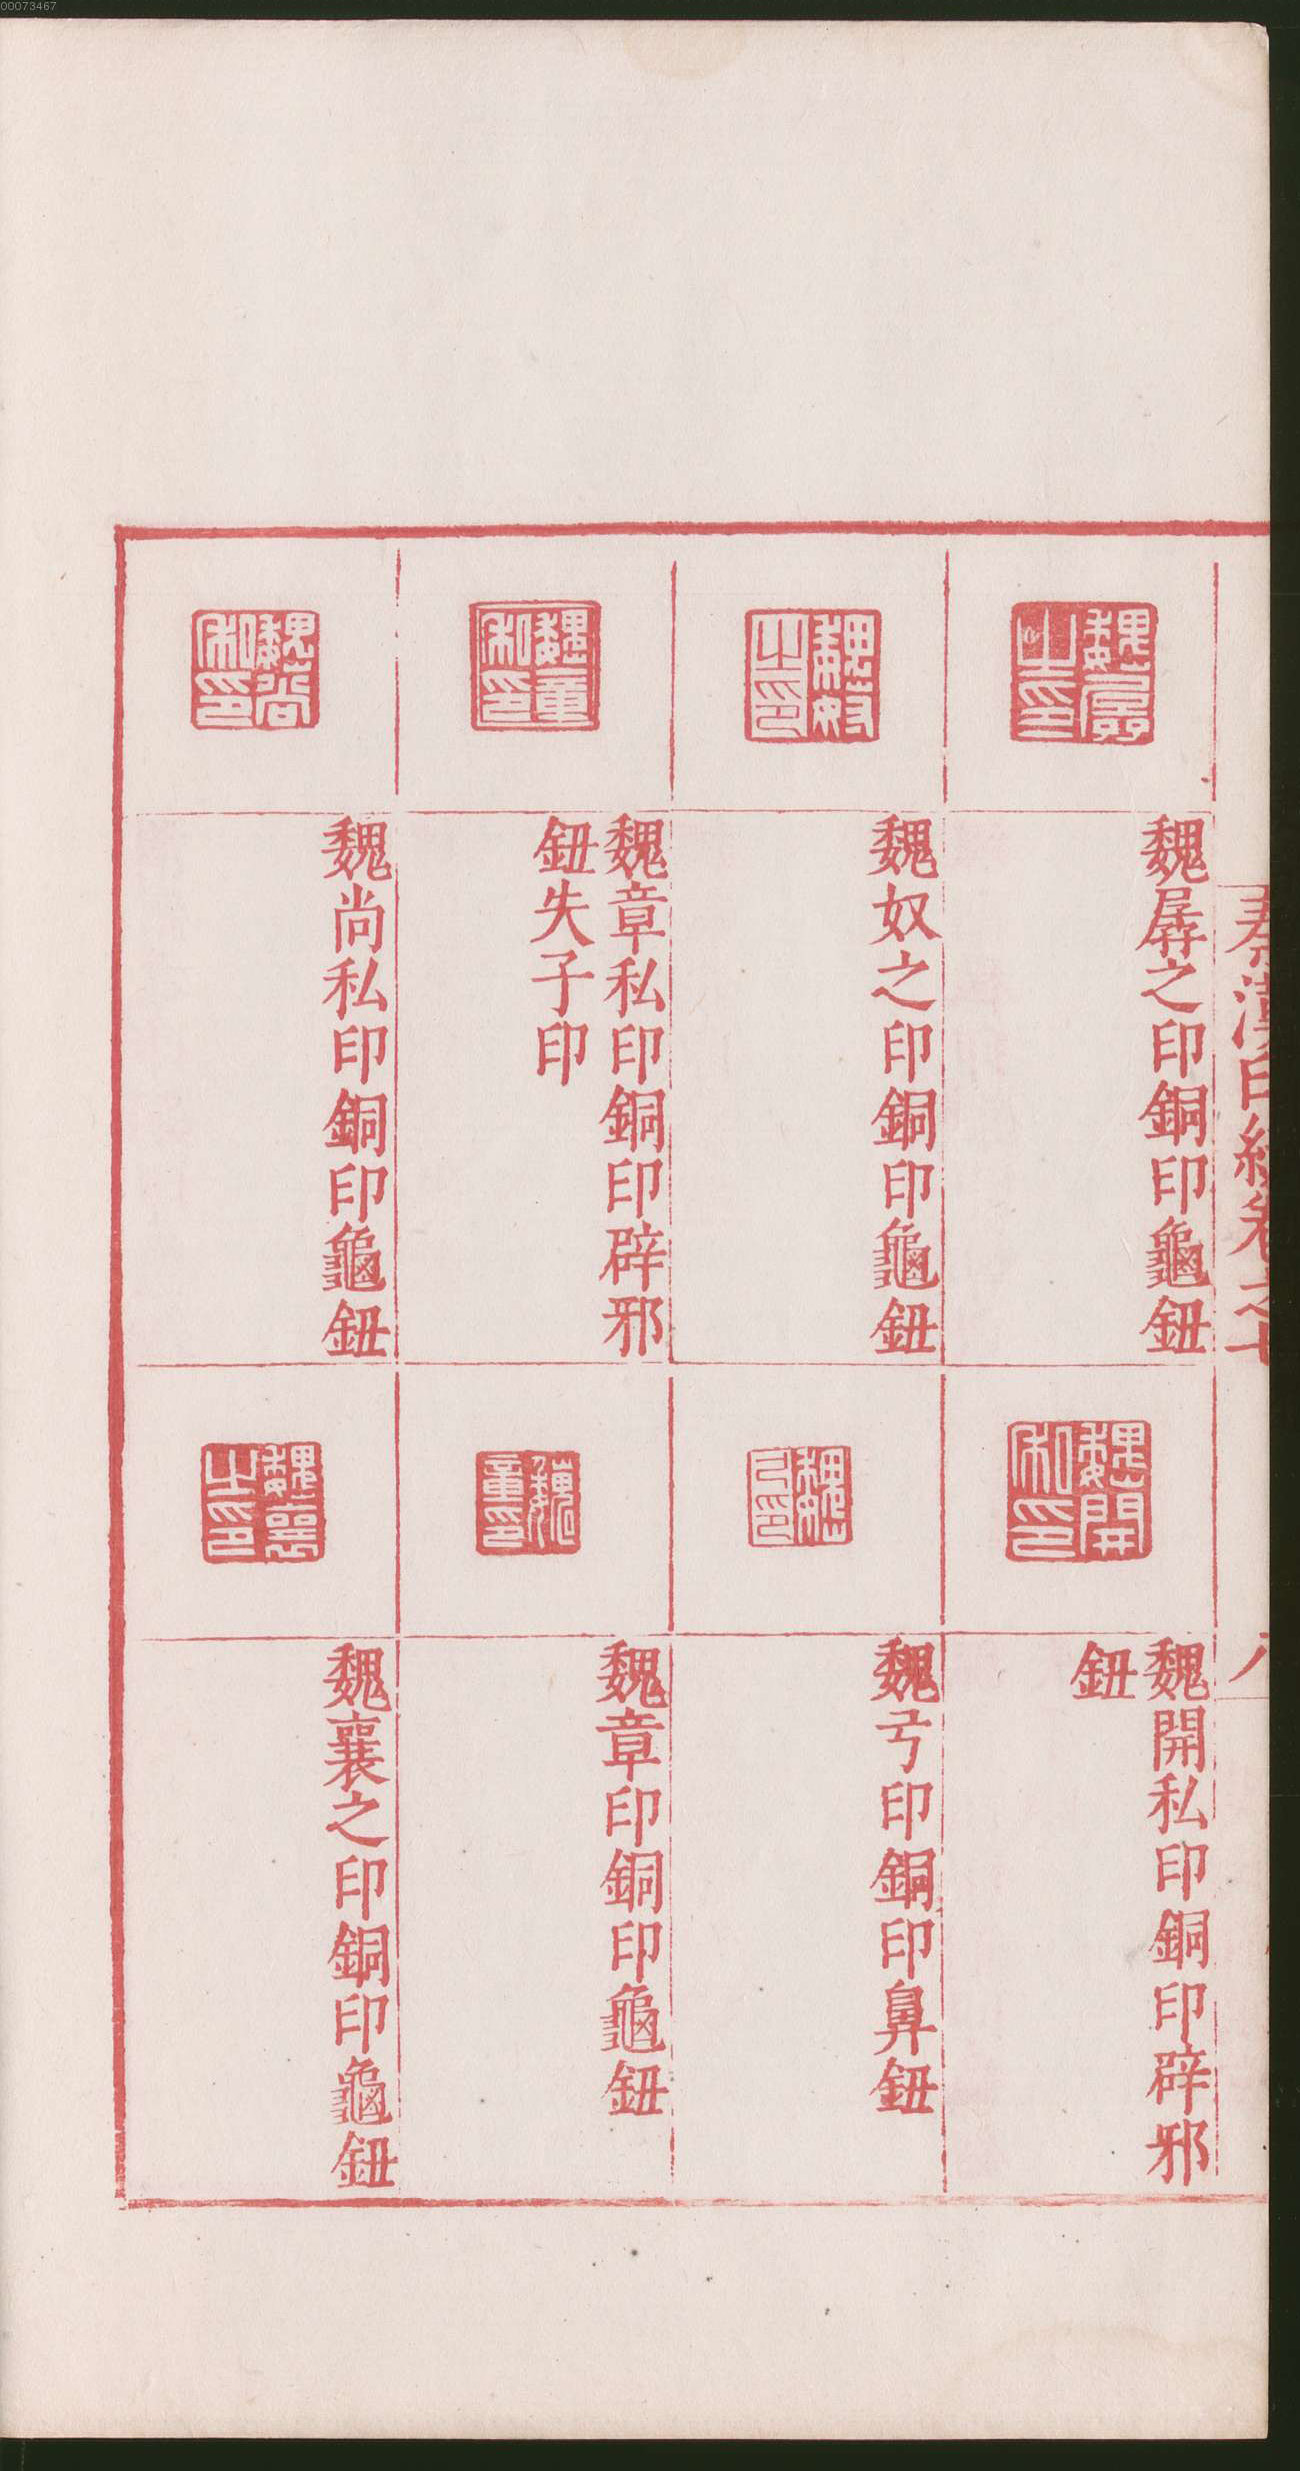 00073467
秦漢印統卷之七
八
魏孱之印銅印龜鈕
魏奴之印銅印龜鈕
魏章私印銅印辟邪
鈕失子印
魏尚私印銅印龜鈕
魏開私印銅印辟邪
鈕
魏弓印銅印鼻鈕
魏章印銅印龜鈕
魏襄之印銅印龜鈕